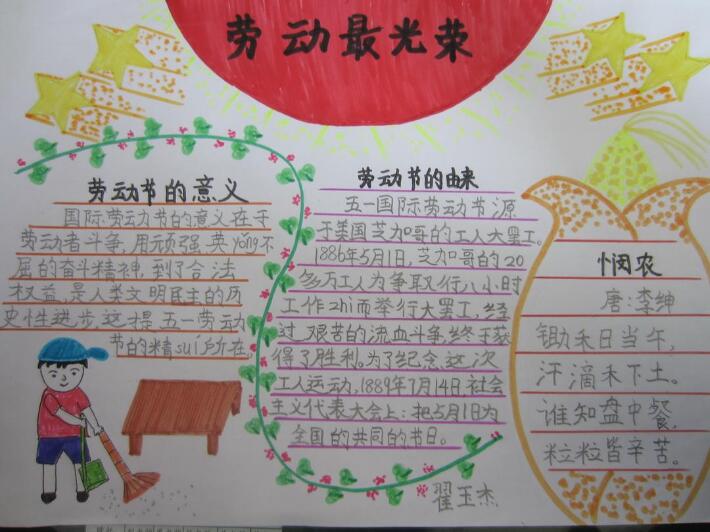 劳动最光荣
劳动节的意义
国际劳动节的意义在于
劳动者斗争,用顽强、英yǒng不
屈的奋斗精神,到了合法
权益,是人类文明民主的历
史性进步,这提五一劳动
节的精suǐ所在。
劳动节的由来
五一国际劳动节源
于美国芝加哥的工人大罢工。
1886年5月1日,芝加哥的20
多万工人为争取又行八小时
工作zhi而举行大罢工,经
过艰苦的流血斗争,终于获
得了胜利。为了纪念这次
工人运动,1889年7月14日,社会
主义代表大会上:把5月1日为
全国的共同的节日。
翟玉杰
悯农
唐:李绅
锄禾日当午,
汗滴禾下土。
谁知盘中餐,
粒粒皆辛苦。